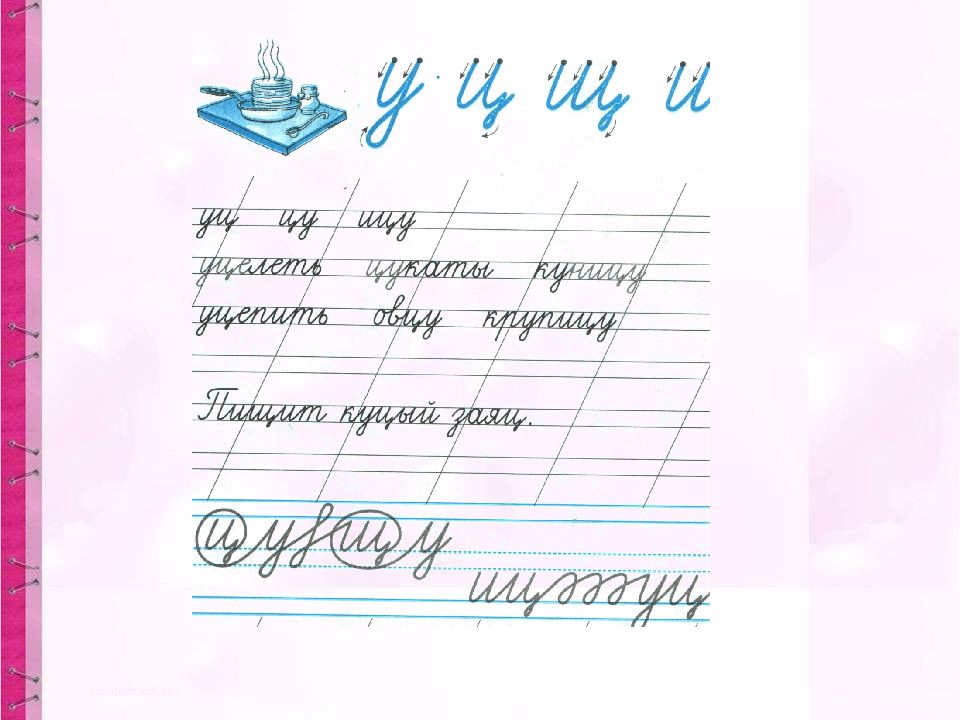 у ц щ и
уц цу ицу
уцелеть цукаты куницу
уцепить овцу крупицу
Пищит куцый заяц.